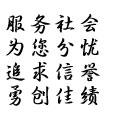 服务社会
为您分忧
追求信誉
勇创佳绩